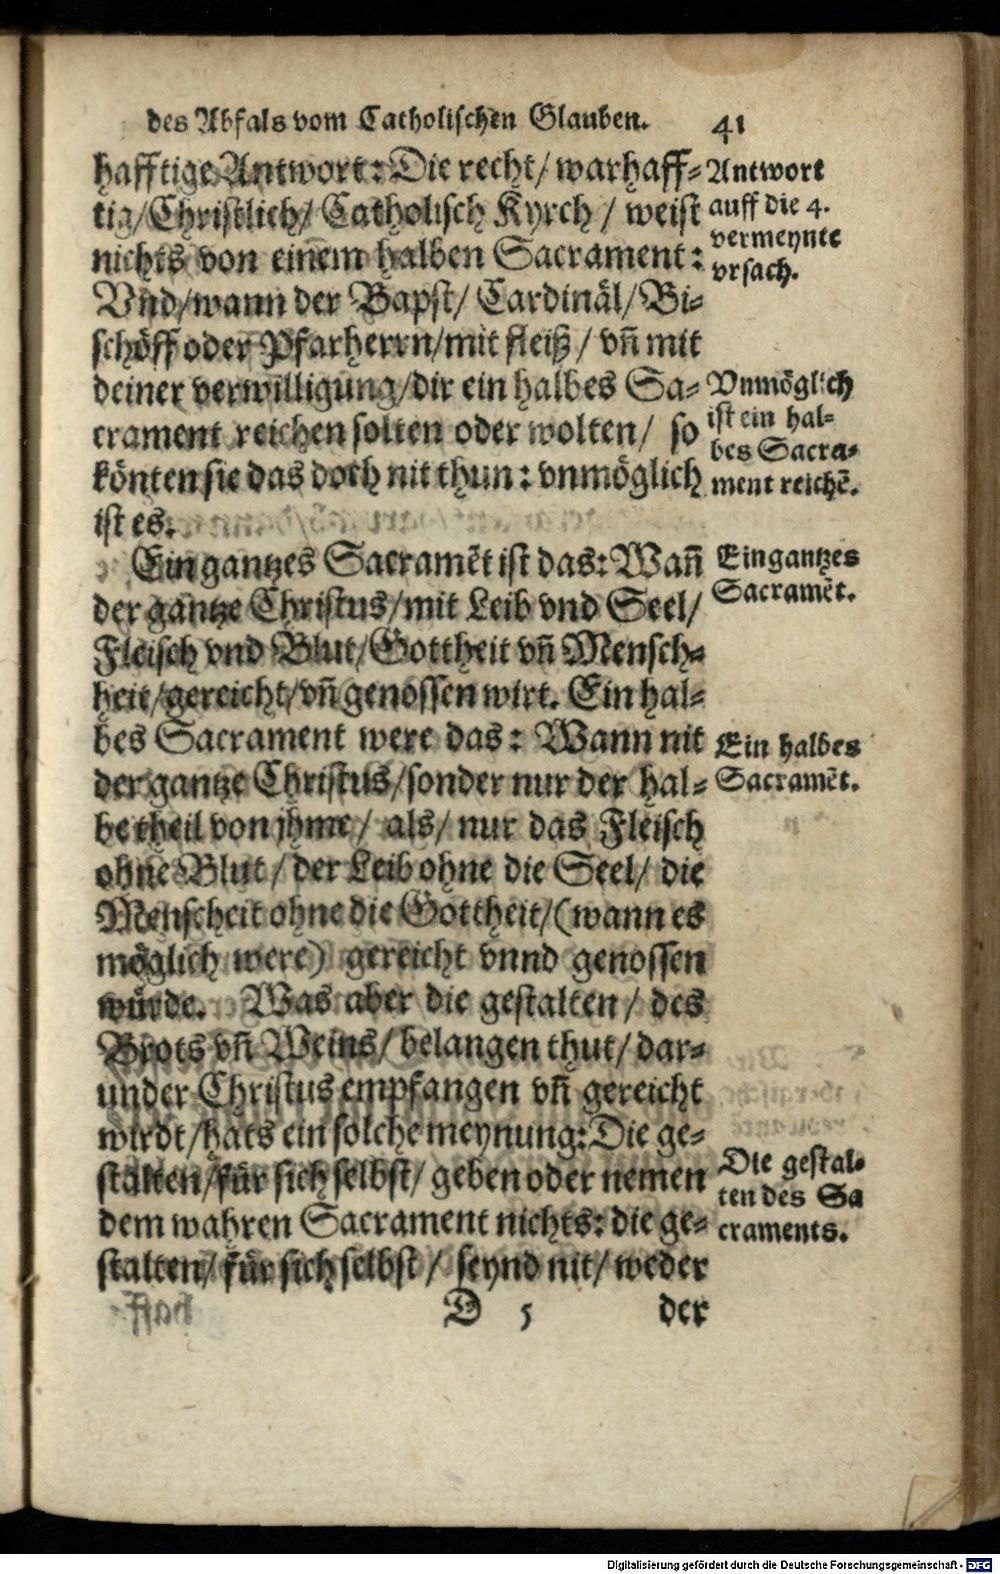 des Abfals vom Catholischen Glauben. 41
hafftige Antwort: Die recht/ warhaff⸗
tig/ Christlich/ Catholisch Kyrch / weist
nichts von einem halben Sacrament:
Vnd/wann der Bapst/ Cardinäl/ Bi⸗
schöff oder Pfarherrn/mit fleiß / vñ mit
deiner verwilligung/dir ein halbes Sa⸗
crament reichen solten oder wolten/ so
könten sie das doch nit thun: vnmöglich
ist es.
Ein gantzes Sacramẽt ist das: Wañ
der gantze Christus/mit Leib vnd Seel/
Fleisch vnd Blut/Gottheit vñ Mensch⸗
heit/gereicht/vñ genossen wirt. Ein hal⸗
bes Sacrament were das: Wann nit
der gantze Christus/sonder nur der hal⸗
be theil von jhme/ als/ nur das Fleisch
ohne Blut/ der Leib ohne die Seel/ die
Menscheit ohne die Gottheit/(wann es
möglich were) gereicht vnnd genossen
würde. Was aber die gestalten/ des
Brots vñ Weins/ belangen thut/ dar⸗
under Christus empfangen vñ gereicht
wirdt/hats ein solche meynung: Die ge⸗
stalten/für sich selbst/ geben oder nemen
dem wahren Sacrament nichts: die ge⸗
stalten/ für sich selbst / seynd nit/ weder
D 5 der
Antwort
auff die 4.
vermeynte
vrsach.
Vnmöglich
ist ein hal⸗
bes Sacra⸗
ment reichẽ.
Ein gantzes
Sacramẽt.
Ein halbes
Sacramẽt.
Die gestal⸗
ten des Sa
craments.
Digitalisierung gefördert durch die Deutsche Forschungsgemeinschaft - DFG